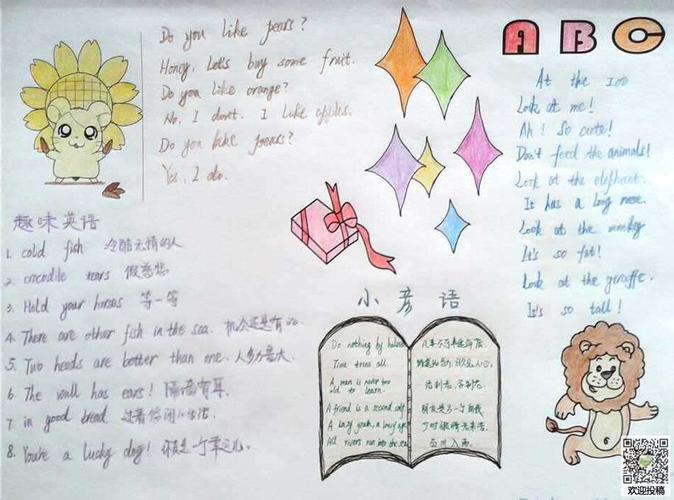 Do you like pears?
Honey, Let's buy some fruit.
Do you like orange?
No, I don't. I like apples.
Do you like pears?
Yes, I do.
A B C
At the zoo
Look at me!
Ah! So cute!
Don't feed the animals!
Look at the elephant.
It has a long nose.
Look at the monkey
It's so fat!
Look at the giraffe.
It's so tall!
趣味英语
1. cold fish 冷酷无情的人
2. crocodile tears 假慈悲
3. Hold your horses 等一等
4. There are other fish in the sea. 机会还是有的.
5. Two heads are better than one. 人多力量大.
6. The wall has ears! 隔墙有耳.
7. in good bread 过着悠闲的生活
8. You're a lucky dog! 你真是一个幸运儿.
小彦语
Do nothing by halves
Time tries all.
A man is never too
old to learn.
A friend is a second self
A lazy youth, a lousy age
All rivers run into the sea
凡事不可半途而废
路遥知马力,日久见人心.
活到老,学到老.
朋友是另一个自我
百川入海.
6
欢迎投稿